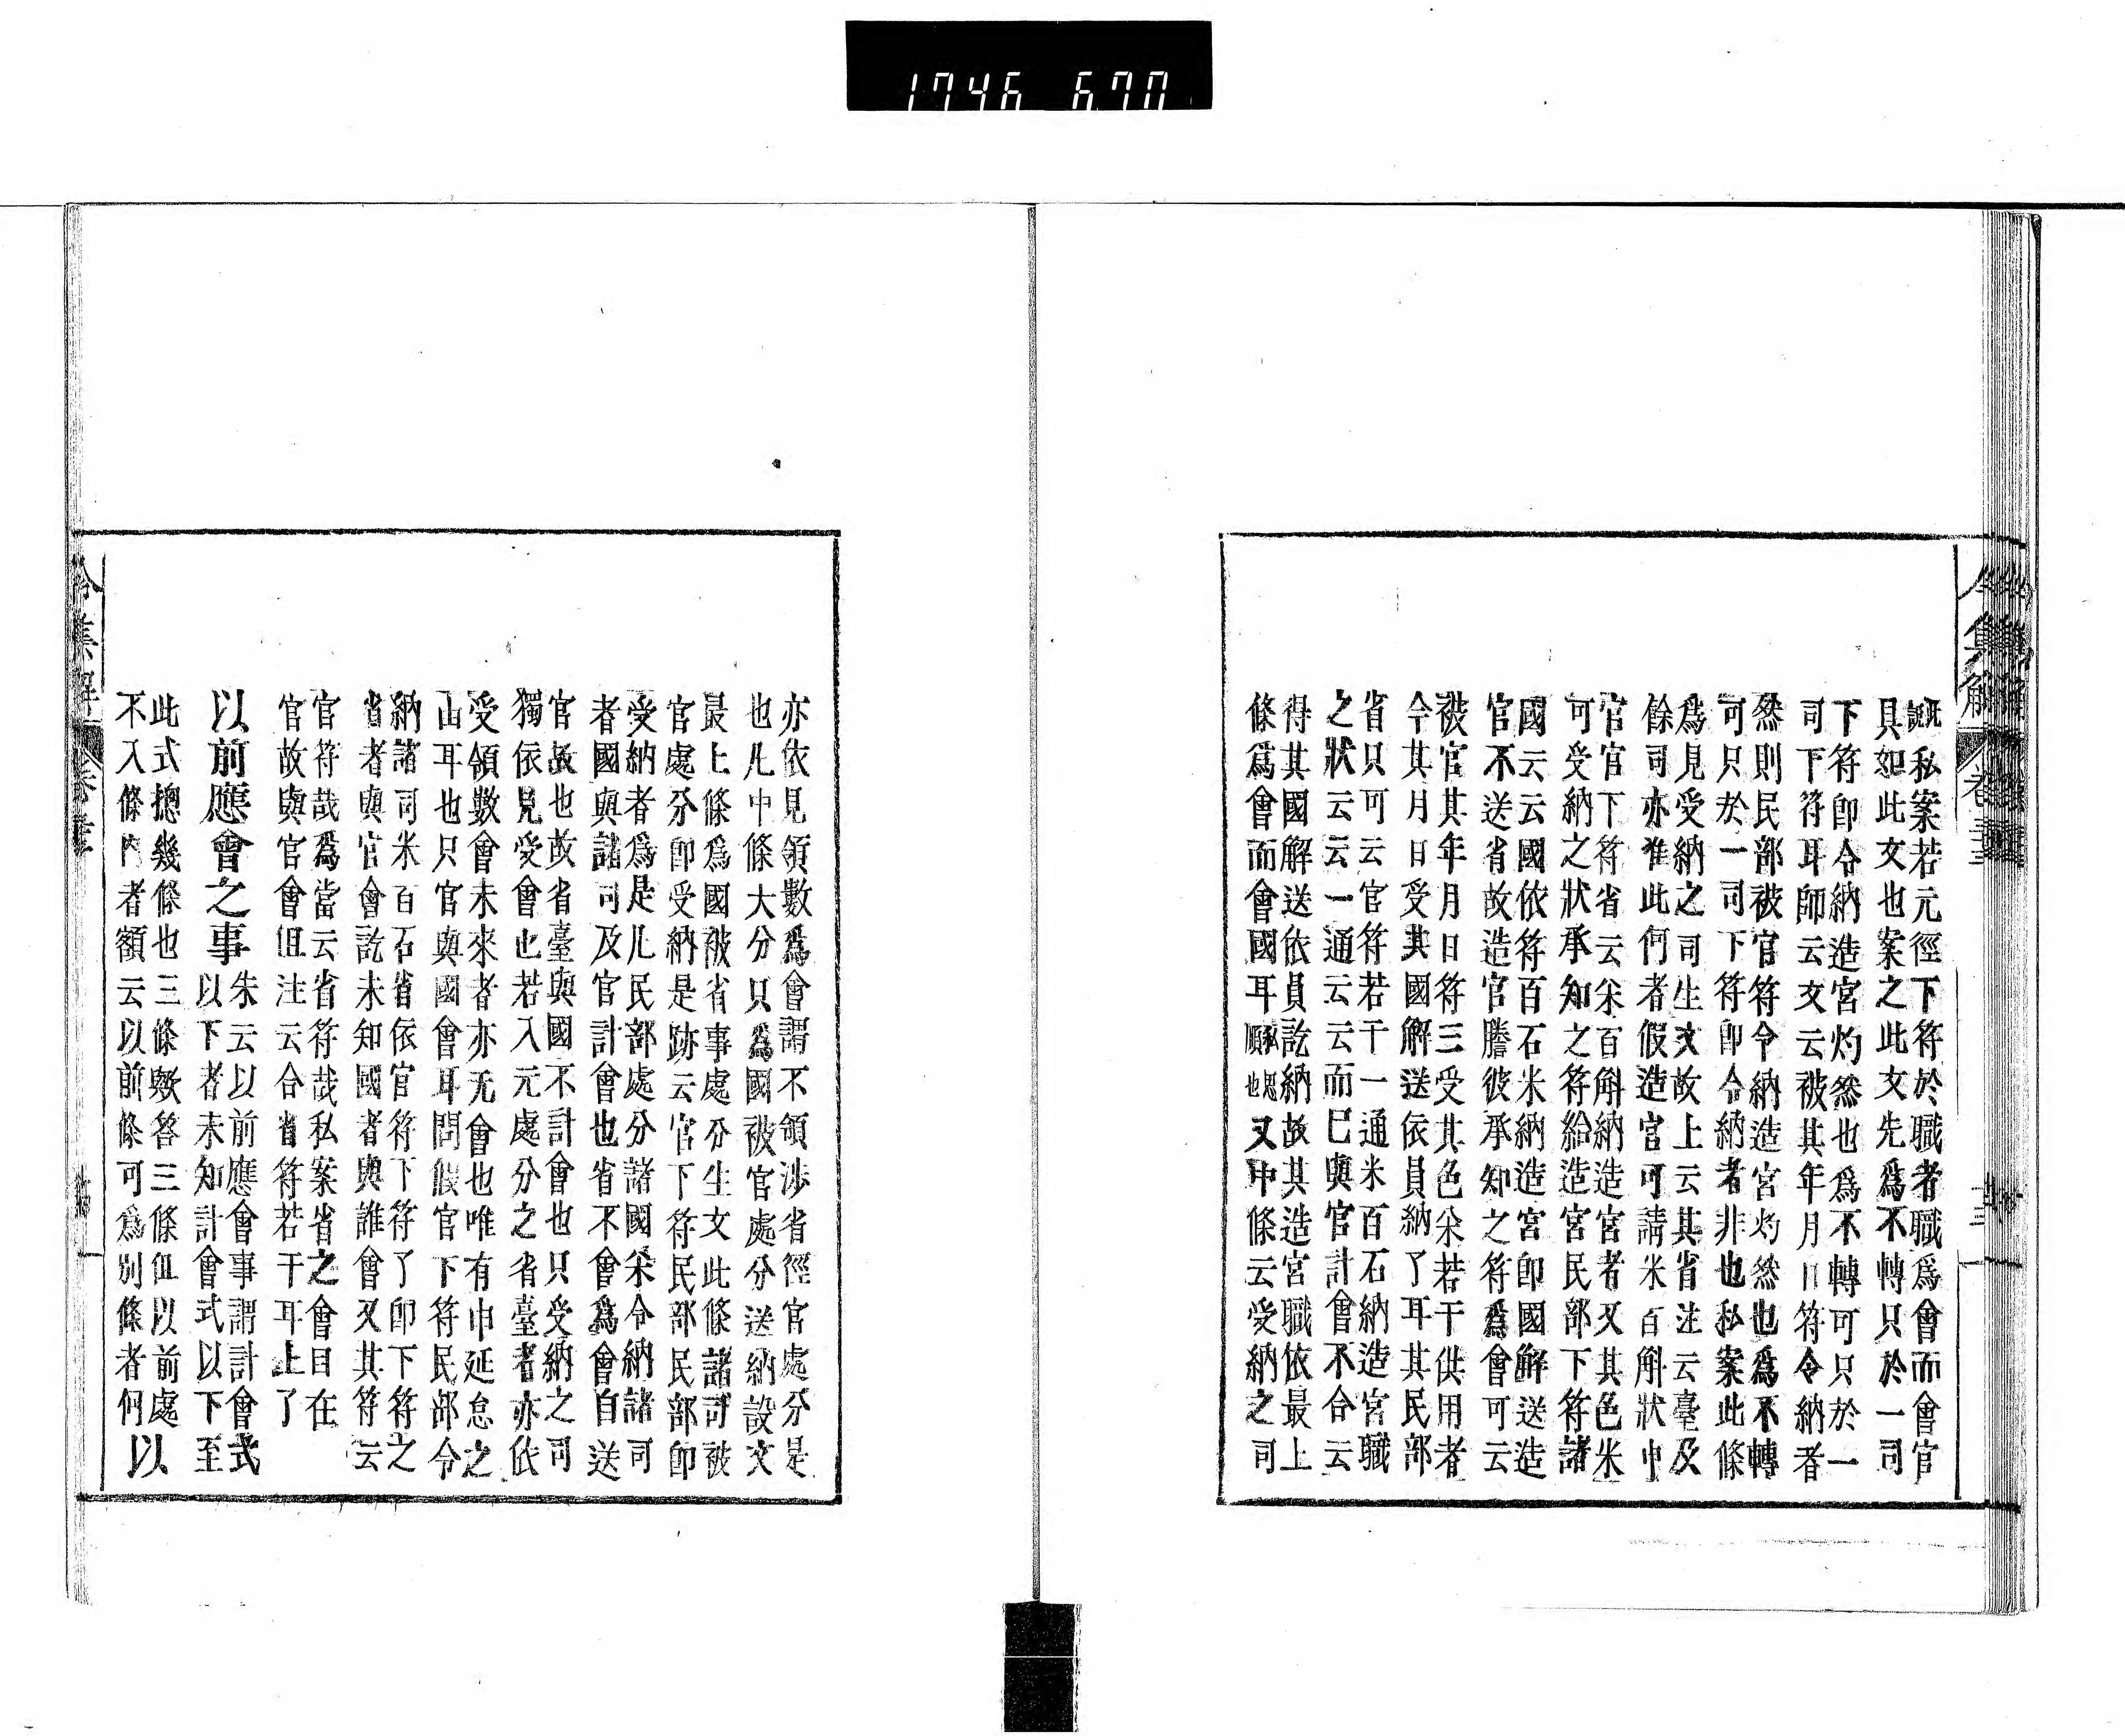 1746 670
令集解 卷三
訖私案若元徑下符於職者職爲會而會官
具如此文也案之此文先爲不轉只於一司
下符卽令納造宮灼然也爲不轉可只於一
司下符耳師云文云被其年月日符令納者
然則民部被官符令納造宮灼然也爲不轉
可只於一司下符卽令納者非也私案此條
爲見受納之司生文故上云其省注云臺及
餘司亦准此們者假造官可請米百斛狀申
官官下符省云米百斛納造宮者又其色米
可受納之狀承知之符給造宮民部下符諸
國云云國依符百石米納造宮卽國解送造
官不送省故造官謄彼承知之符爲會可云
被官其年月日符三受其色米若干供用者
今其月日受其國解送依員納了耳其民部
省只可云官符若干一通米百石納造宮職
之狀云云一通云云而已與官計會不合云
得其國解送依員訖納故其造宮職依最上
條爲會而會國耳順私思也又中條云受納之司
亦依見領數爲會謂不領涉省徑官處分是
也凡中條大分只爲國被官處分送納設文
最上條爲國被省事處分生文此條諸司被
官處分卽受納是跡云官下符民部民部卽
受納者爲是凡民部處分諸國米令納諸司
者國與諸司及官計會也省不會爲會自送
官故也故省臺與國不計會也只受納之司
獨依見受會也若入元處分之省臺者亦依
受領數會未來者亦无會也唯有申延怠之
山耳也只官與國會耳問假官下符民部令
納諸司米百石省依官符下符了卽下符之
省者與官會訖未知國者與誰會又其符云
官符哉爲當云省符哉私案省之會目在
官故與官會但注云合省符若干耳上了
以前應會之事朱云以前應會事謂計會式
以下者未知計會式以下至
此式摠幾條也三條歟答三條但以前處
不入條內者額云以前條可爲別條者何以
令集解 卷三